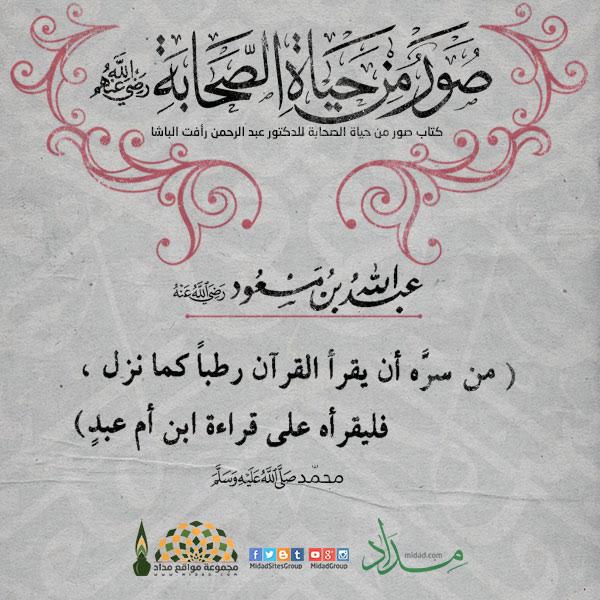 صور من حياة الصحابة رضي الله عنهم
كتاب صور من حياة الصحابة للدكتور عبد الرحمن رأفت الباشا
عبد الله بن مسعود رضي الله عنه
( من سرَّه أن يقرأ القرآن رطباً كما نزل ،
فليقرأه على قراءة ابن أم عبدٍ)
محمد صلى الله عليه وسلم
مجموعة مواقع مداد
WWW.MIDAD.COM
MidadSitesGroup MidadGroup
مداد
midad.com